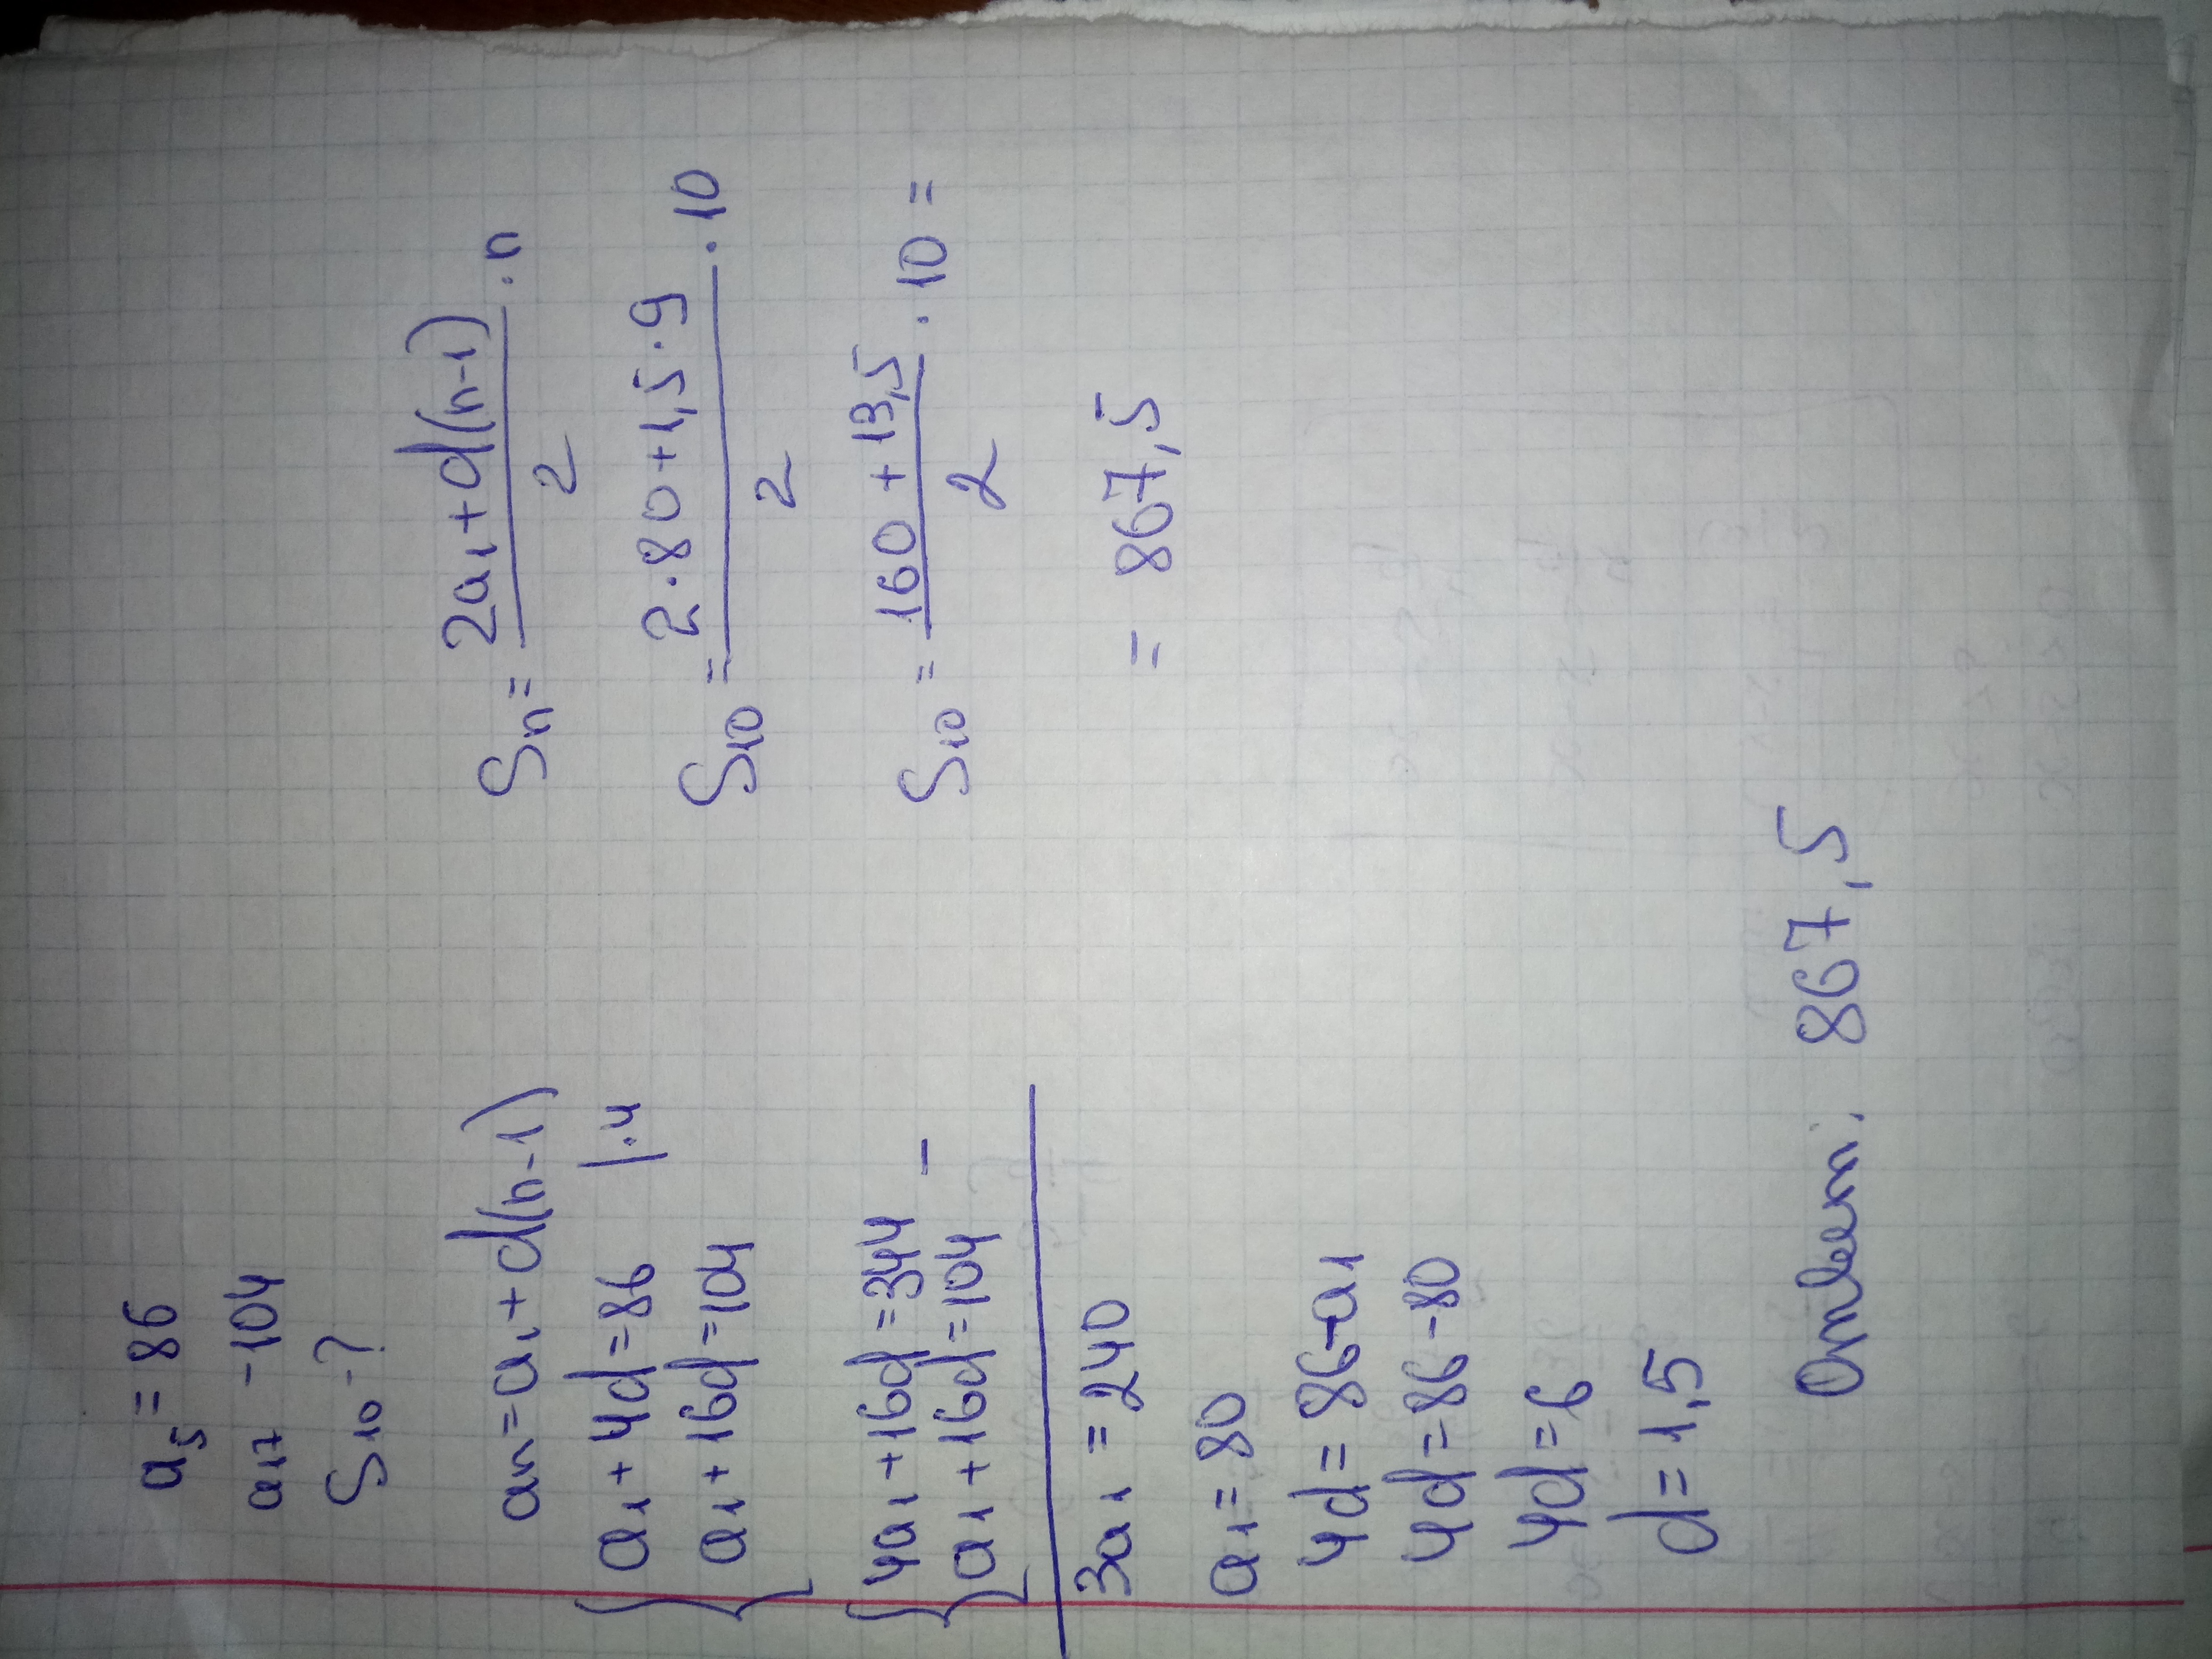 a₅ = 86
a₁₇ - 104
S₁₀ - ?
aₙ = a₁ + d(n-1)
{ a₁ + 4d = 86 |·4
a₁ + 16d = 104
{ 4a₁ + 16d = 344
a₁ + 16d = 104 −
3a₁ = 240
a₁ = 80
4d = 86 - a₁
4d = 86 - 80
4d = 6
d = 1,5
Sₙ = (2a₁ + d(n-1))/2 · n
S₁₀ = (2·80 + 1,5·9)/2 · 10
S₁₀ = (160 + 13,5)/2 · 10 =
= 867,5
Ответ: 867,5